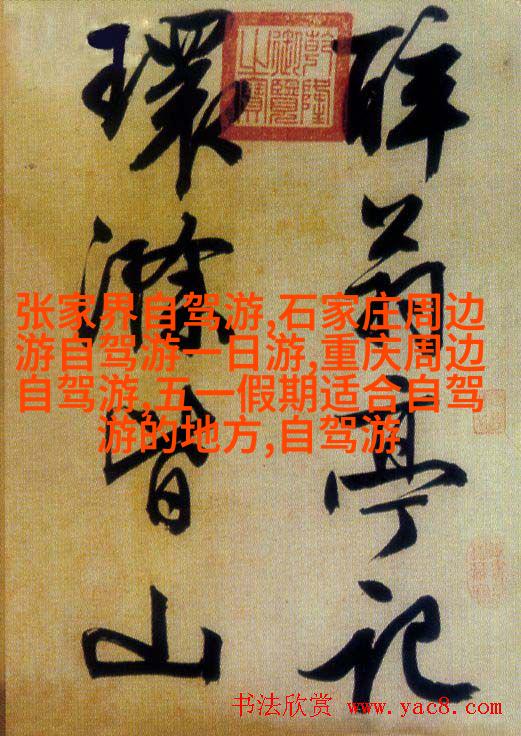 醉翁亭记
環滁皆山
乾隆御覽之寶
张家界自驾游,石家庄周边
游自驾游一日游,重庆周边
自驾游,五一假期适合自驾
游的地方,自驾游
书法欣赏 www.yac8.com